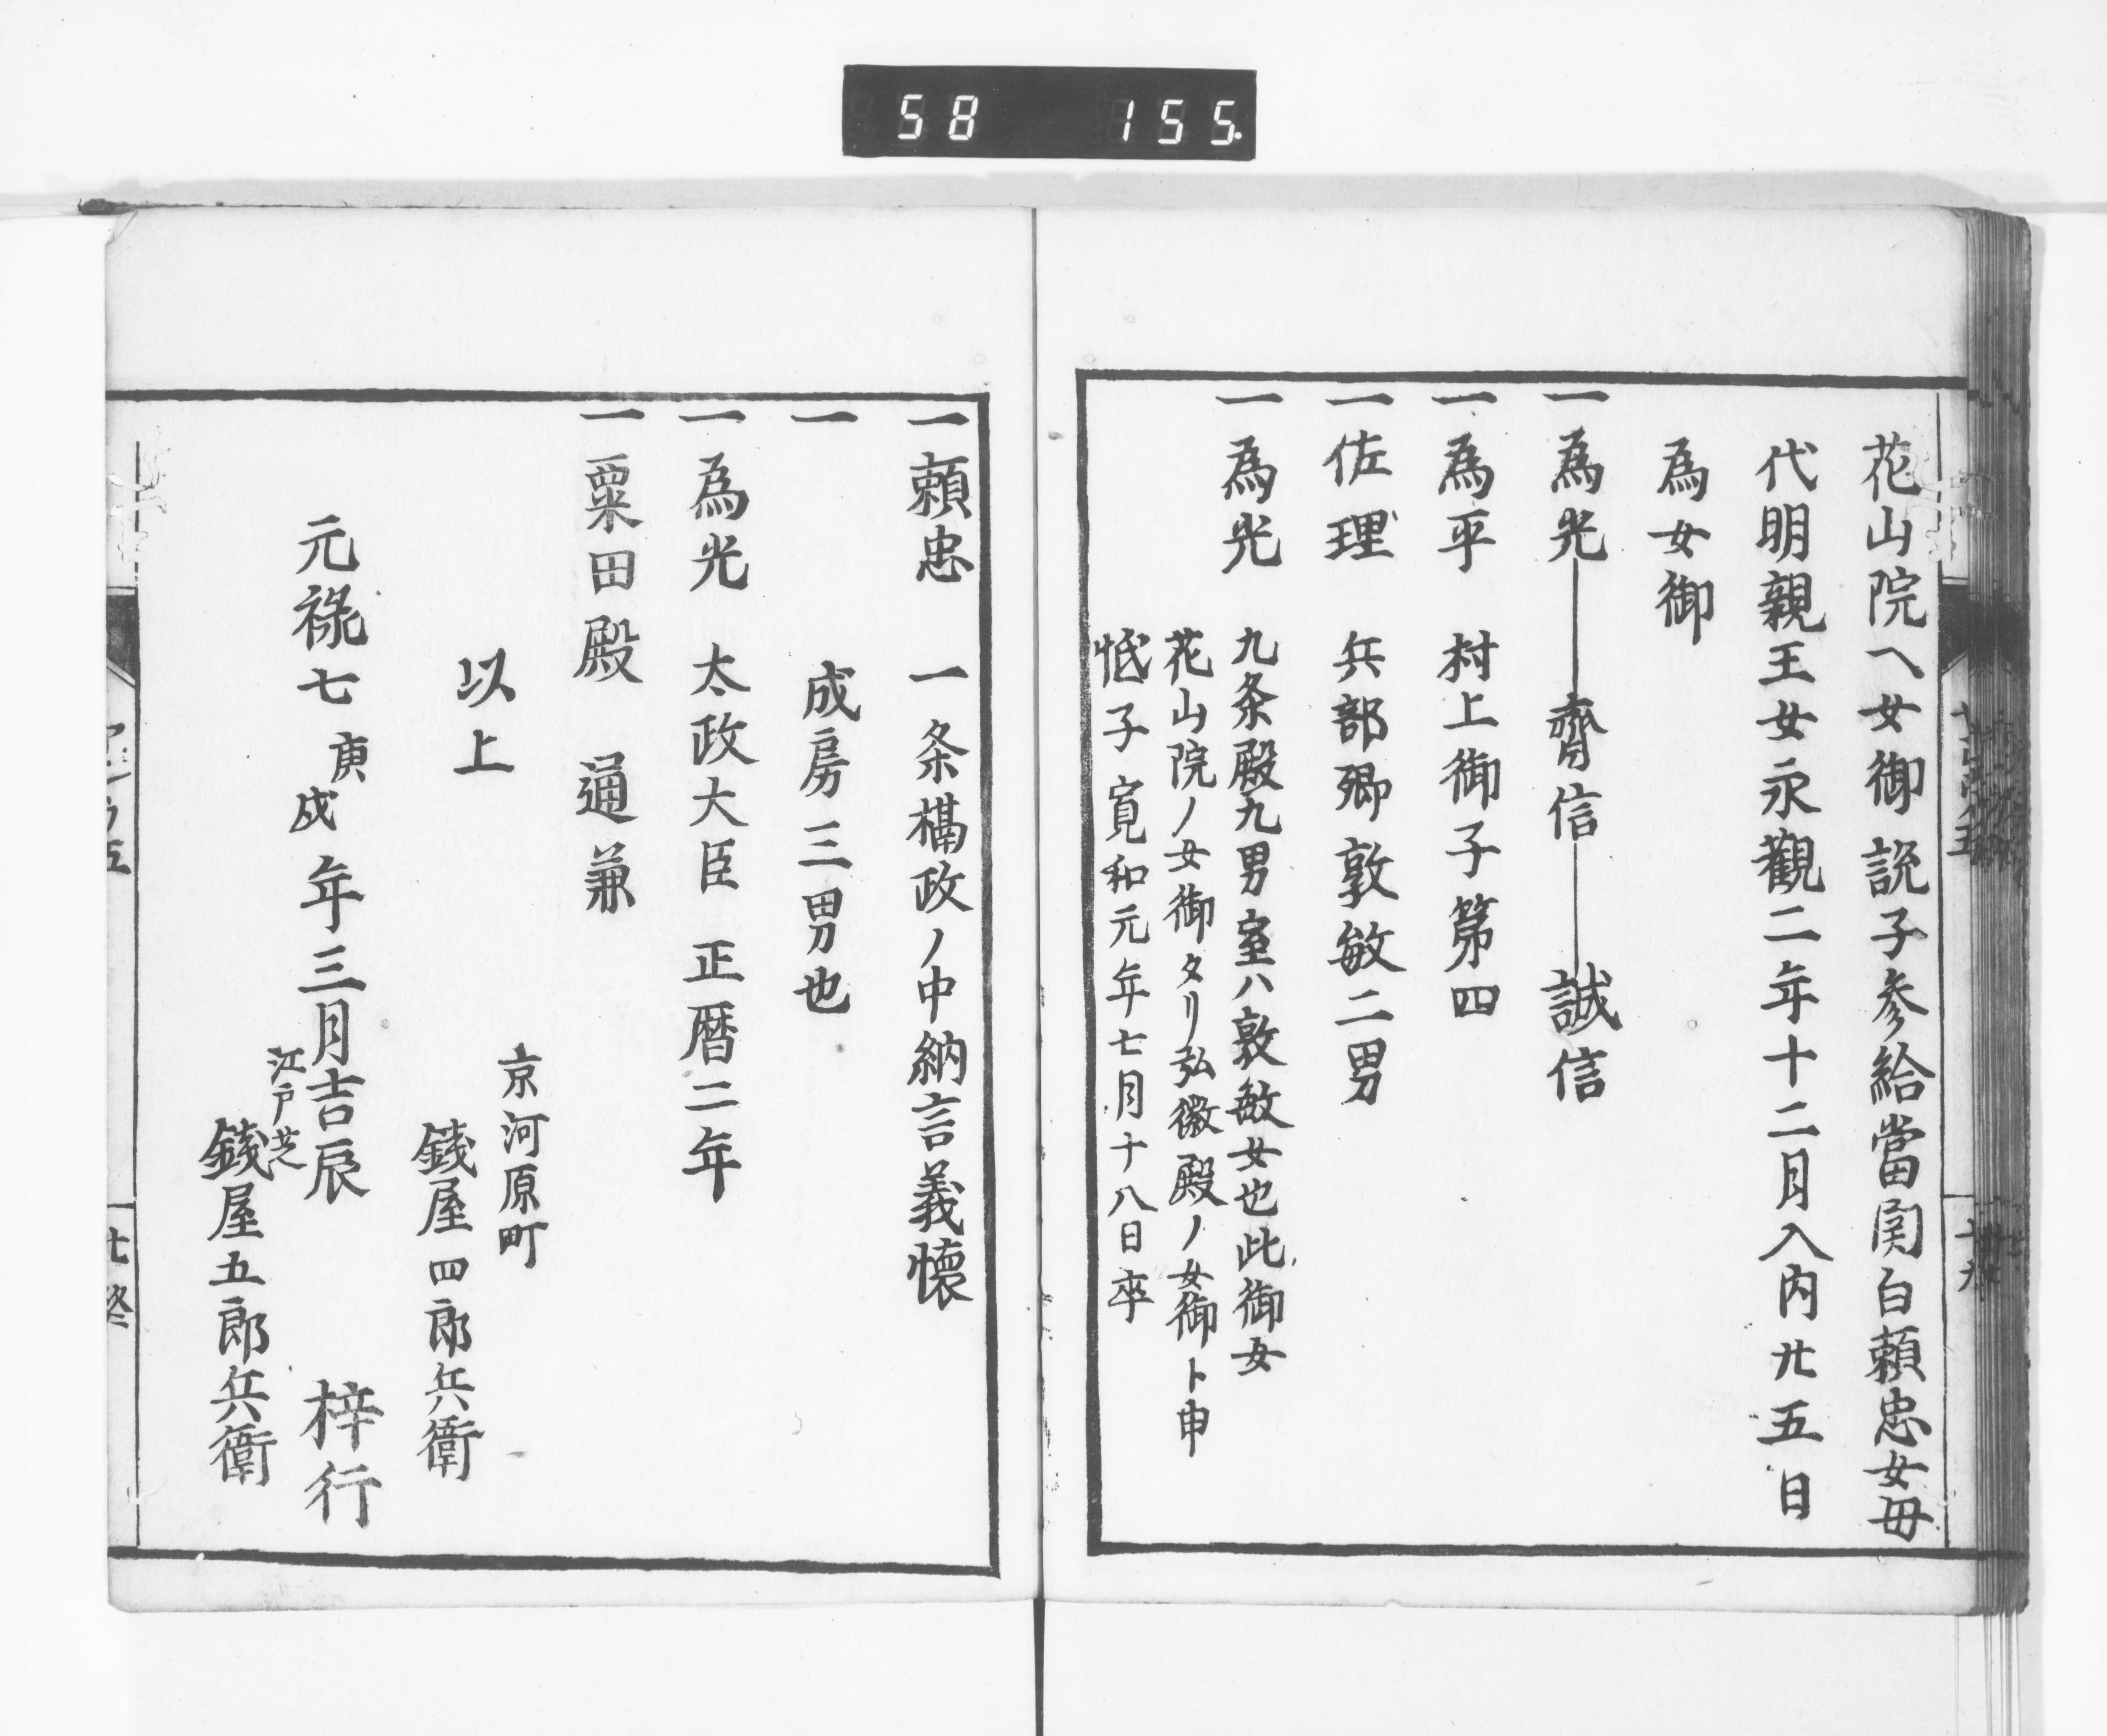 58 155
花山院ヘ女御諟子参給當関白頼忠女母
代明親王女永觀二年十二月入内廿五日
為女御
一為光―齊信―誠信
一為平 村上御子第四
一佐理 兵部卿敦敏二男
一為光 九条殿九男室ハ敦敏女也此御女
花山院ノ女御タリ弘徽殿ノ女御ト申
忯子寛和元年七月十八日卒
一頼忠 一条攝政ノ中納言義懐
一 成房三男也
一為光 太政大臣 正暦二年
一粟田殿 通兼
以上
京河原町
錢屋四郎兵衛
元禄七庚戌年三月吉辰 梓行
江戸芝
錢屋五郎兵衛